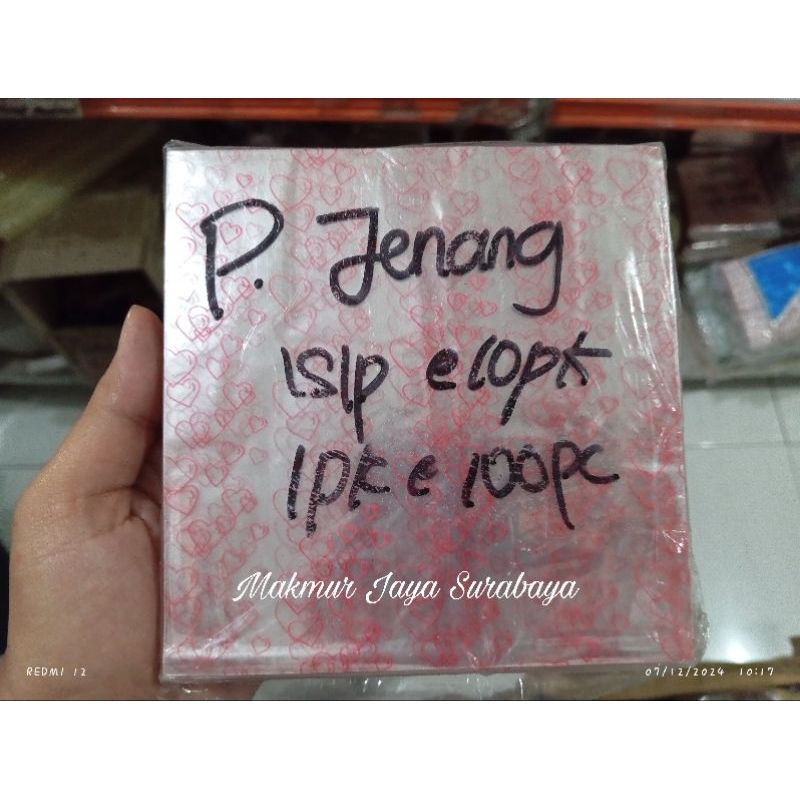 P. Jenang
1slp e10pk
1pk e 100pc
Makmur Jaya Surabaya
REDMI 12
07/12/2024 10:17